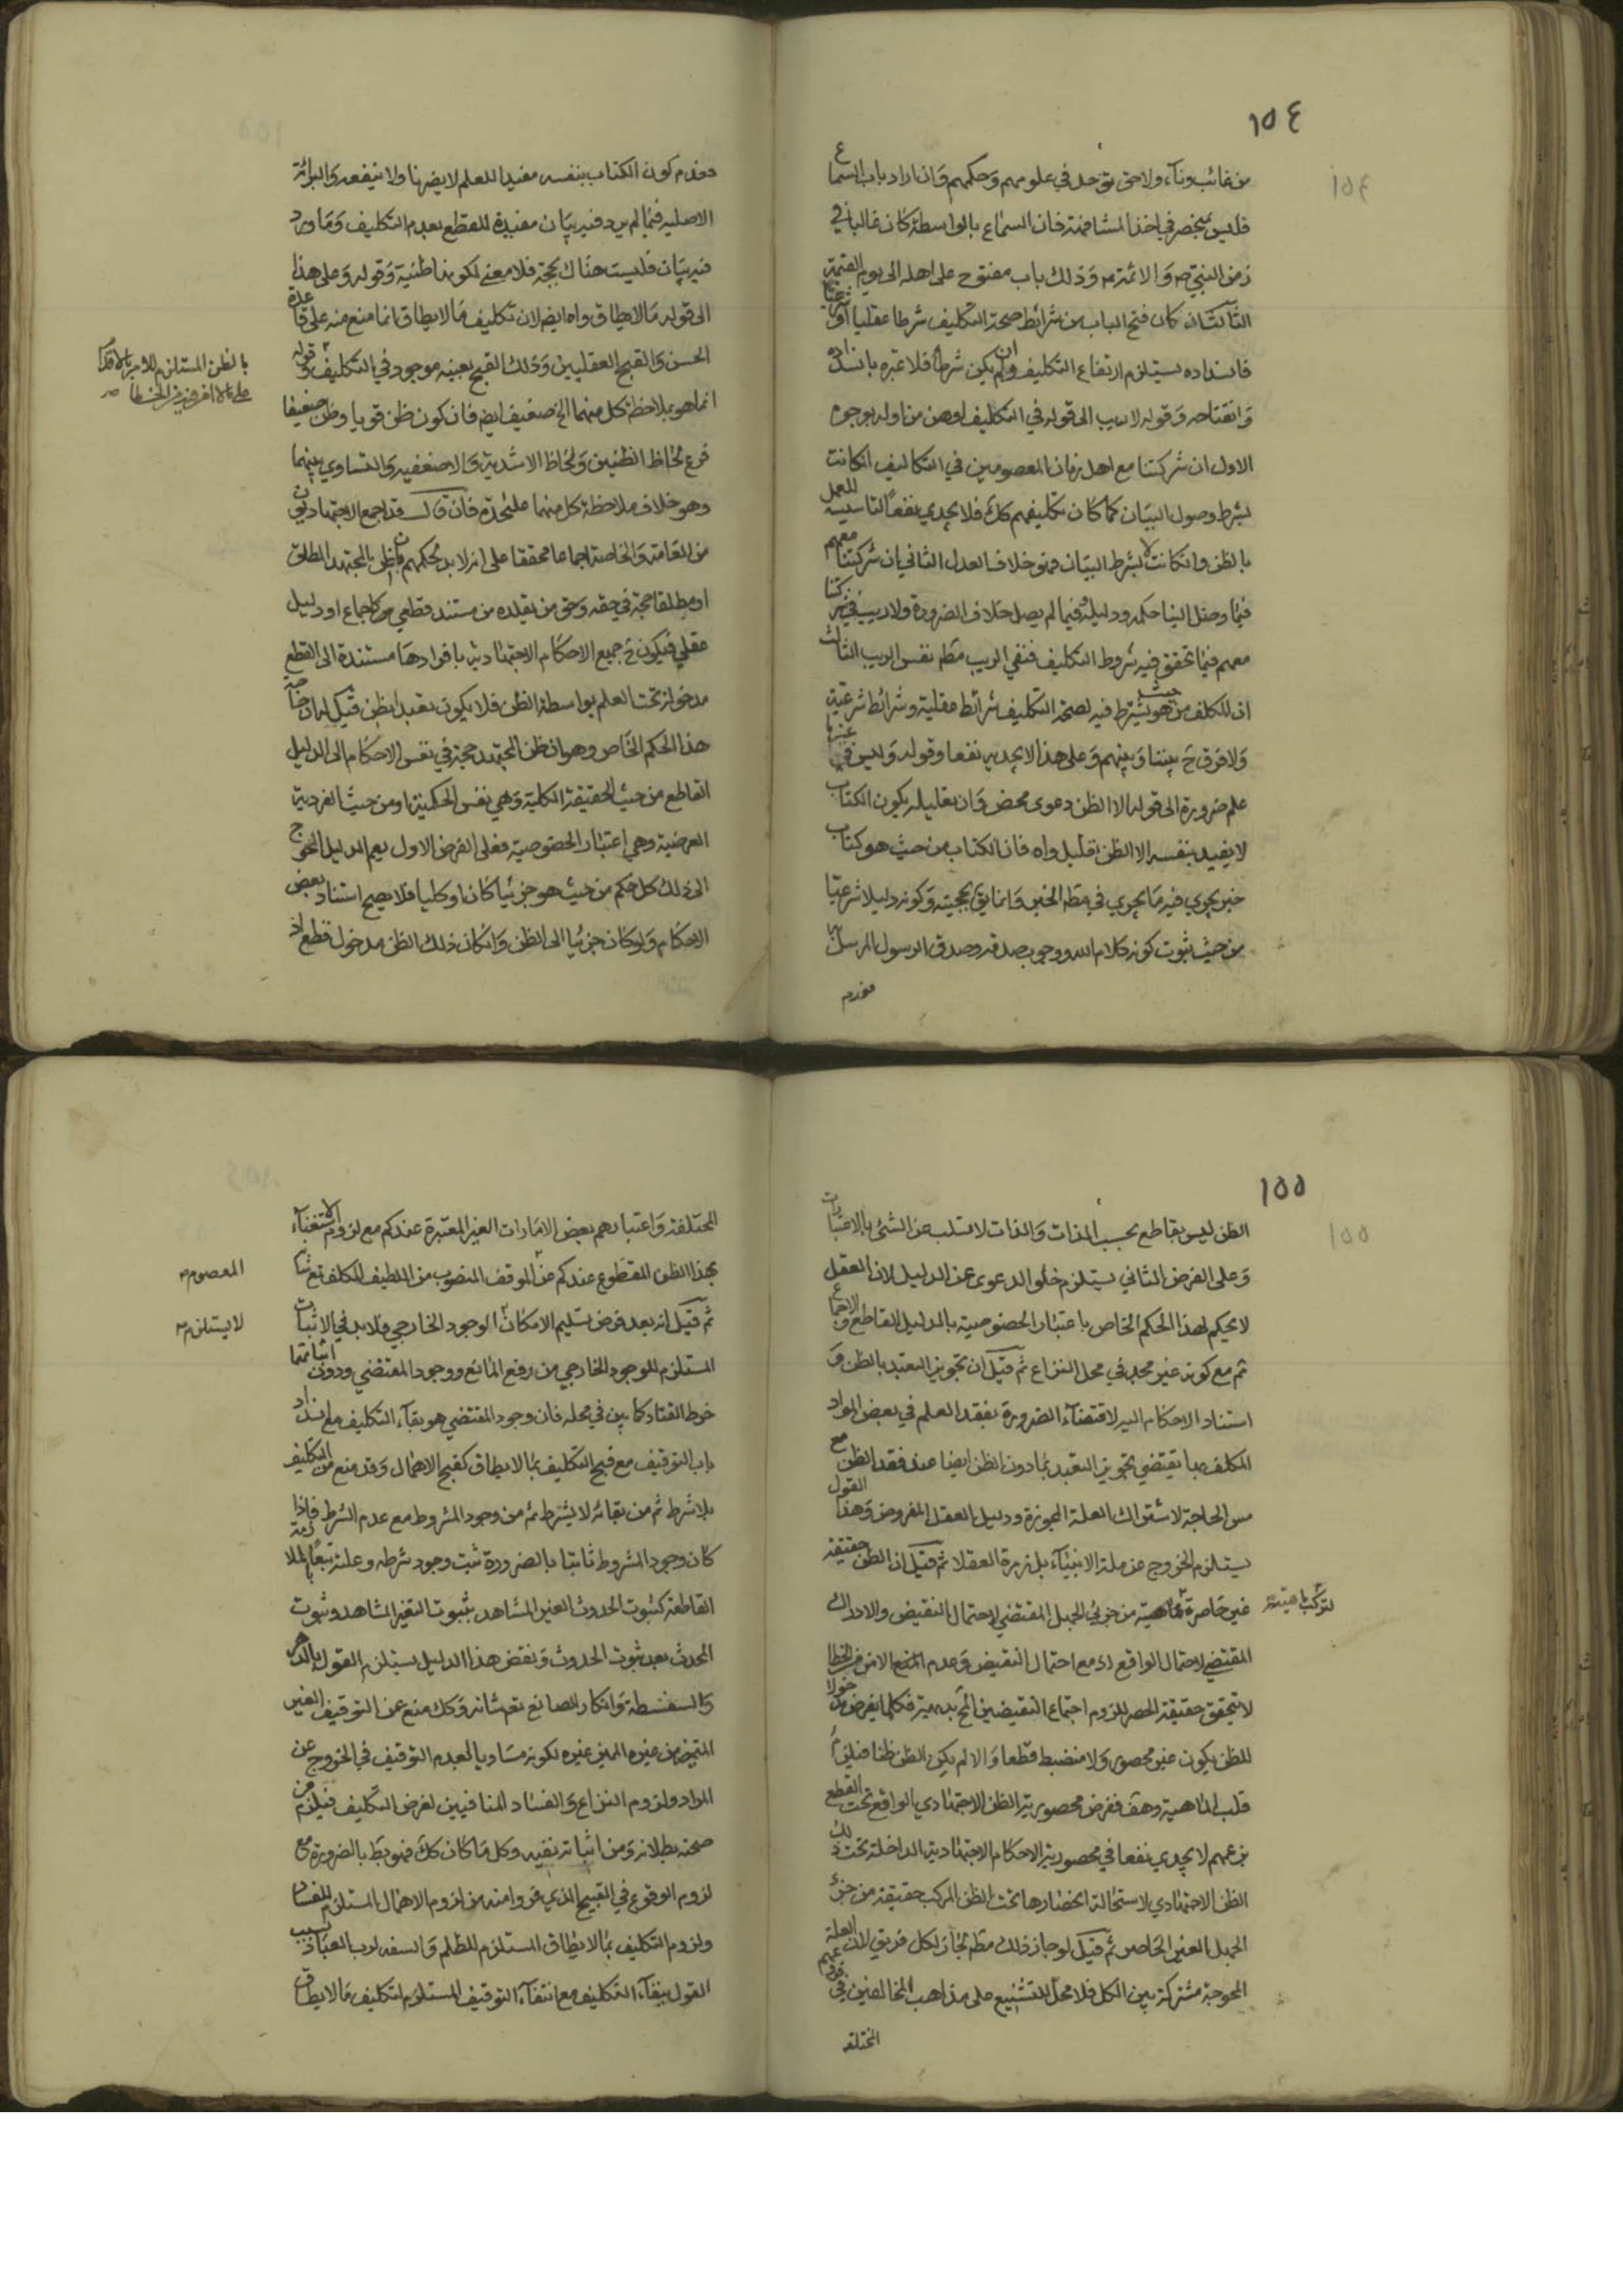 ١٥٤
من غائب ونآء ولا حق يؤخذ في علومهم وحكمهم وان اراد باب السماع
فليس بمنحصر في اخذ المشافهة فان السماع بالواسطة كان غالبا في
زمن النبي ص والائمة ع وذلك باب مفتوح على اهله الى يوم القيمة
الثالث ان كان فتح الباب من شرائط صحة التكليف شرطا عقليا او شرعيا
فانسداده يستلزم ارتفاع التكليف وان لم يكن شرطا فلا عبرة بانسداده
وانفتاحه وقوله لا ريب الى قوله في التكليف اوهن من اوله بوجوه
الاول ان شركتنا مع اهل زمان المعصومين في التكاليف ان كانت
بشرط وصول البيان كما كان تكليفهم كك فلا يجدي نفعا لتاسيسه للعمل
بالظن وان كانت لا بشرط البيان فهو خلاف العدل الثاني ان شركتنا معهم
فيما وصل الينا حكمه ودليله وفيما لم يصل خلاف الضرورة ولا ريب في شركتنا
معهم فيما تحقق فيه شروط التكليف فنفي الريب مط نفس الريب الثالث
ان المكلف من حيث هو يشترط فيه لصحة التكليف شرائط عقلية وشرائط شرعية
ولا فرق ح بيننا وبينهم وعلى هذا لا يجديه نفعا وقوله وليس في غيرها
علم ضرورة الى قوله الا الظن دعوى محض وان تعليله بكون الكتاب
لا يفيد بنفسه الا الظن تعليل واه فان الكتاب من حيث هو كتاب
خبر يجري فيه ما يجري في مط الخبر وانما يق بحجيته وكونه دليلا شرعيا
من حيث ثبوت كونه كلام الله ووجوب صدقه وصدق الرسول المرسل بها
فعدم
فعدم كون الكتاب بنفسه مفيدا للعلم لا يضرنا ولا ينفعه والبرائة
الاصلية فيما لم يرد فيه بيان مفيدة للقطع بعدم التكليف وما ورد
فيه بيان فليست هناك بحجة فلا معنى لكونها ظنية وقوله وعلى هذا
الى قوله ما لا يطاق واه ايضا لان تكليف ما لا يطاق انما منع منه على قاعدة
الحسن والقبح العقليين وذلك القبح بعينه موجود في التكليف وقوله
بالظن المستلزم للامر بالاقدام
على ما لا يؤمن فيه من الخطا صح
انما هو بملاحظة كل منهما الخ ضعيف ايضا فان كون ظن قويا وظن ضعيفا
فرع لحاظ الظنين ولحاظ الاشدية والاضعفية والتساوي بينهما
وهو خلاف ملاحظة كل منهما عليحدة فان قال قد اجمع الاجتهاديون
من العامة والخاصة اجماعا محققا على انه لا بد لحكمهم بان ظن المجتهد المطلق
او مطلقا حجة في حقه وحق من يقلده من مستند قطعي هو كاجماع او دليل
عقلي فيكون ح جميع الاحكام الاجتهادية بافرادها مستندة الى القطع
مدخولة تحت العلم بواسطة الظن فلا يكون تعبدا بظن قيل ان
هذا الحكم الخاص وهو ان ظن المجتهد حجة في نفس الاحكام الى الدليل
القاطع من حيث الحقيقة الكلية وهي نفس الحكمية او من حيث الفردية
العرضية وهي اعتبار الخصوصية فعلى الفرض الاول يعم الدليل المحوج
الى ذلك كل حكم من حيث هو جزئيا كان او كليا فلا يصح استناد بعض
الاحكام ولو كان جزئيا الى الظن وان كان ذلك الظن مدخول قطع اذ
١٥٥
الظن ليس بقاطع بحسب الذات والذات لا تسلب عن الشئ بالاعتبارات
وعلى الفرض الثاني يستلزم خلو الدعوى عن الدليل لان العقل
لا يحكم لهذا الحكم الخاص باعتبار الخصوصية بالدليل القاطع والاجماع
ثم مع كونه غير مجد في محل النزاع ثم قيل ان تجويز التعبد بالظن و
استناد الاحكام اليه لاقتضاء الضرورة بفقد العلم في بعض المواد
المكلف بها يقتضي تجويز التعبد بما دون الظن ايضا عند فقد الظن مع
مس الحاجة لاشتراك العلة المجوزة ودليل العقل المفروض وهذا القول
يستلزم الخروج عن ملة الانبياء بل زمرة العقلا ثم قيل ان الظن حقيقة
غير حاصرة لتركب ماهيته من جزئي الجهل المقتضي لاحتمال النقيض والادراك
المقتضي لاحتمال الواقع اذ مع احتمال النقيض وعدم المنع الامن من الخطا
لا تتحقق حقيقة الحصر للزوم اجتماع النقيضين المح بديهة فكلما يفرض مدخولا
للظن يكون غير محصور ولا منضبط قطعا والا لم يكن الظن ظنا فيلزم
قلب الماهية وهف ففرض محصورية الظن الاجتهادي الواقع تحت القطع
بزعمهم لا يجدي نفعا في محصورية الاحكام الاجتهادية الداخلة تحت ذلك
الظن الاجتهادي لاستحالة انحصارها تحت الظن المركب حقيقة من جزئ
الجهل الغير الحاصر ثم قيل لو جاز ذلك مط لجاز لكل فريق لان العلة
المحوجة مشتركة بين الكل فلا محل للتشنيع على مذاهب المخالفين في فروعهم
المختلفة
المختلفة واعتبارهم بعض الامارات الغير المعتبرة عندكم مع لزوم الاستغناء
بهذا الظن المقطوع عندكم عن الموقف المنصوب من اللطيف المكلف تع شانه
المعصوم صح
ثم قيل انه بعد فرض تسليم الامكان الوجود الخارجي ولا بد في الاثبات
لا يستلزم صح
المستلزم للوجود الخارجي من رفع المانع ووجود المقتضي ودون اثباتهما
خرط القتاد كما بين في محله فان وجود المقتضي هو بقاء التكليف مع انسداد
باب التوقيف مع قبح التكليف بما لا يطاق كقبح الاهمال وقد منع من التكليف
بلا شرط ثم من بقائه لا بشرط ثم من وجود المشروط مع عدم الشرط فاذا
كان وجود المشروط ثابتا بالضرورة ثبت وجود شرطه وعلته تبعا بالملازمة
القاطعة كثبوت الحدوث الغير المشاهد بثبوت التغير المشاهد وثبوت
المحدث بعد ثبوت الحدوث ونقض هذا الدليل يستلزم القول بالدهر
والسفسطة وانكار الصانع تعم شانه وكك منع عن التوقيف الغير
المتميز من غيره المبين غيره لكونه مساويا لعدم التوقيف في الخروج عن
المراد ولزوم النزاع والفساد المنافيين لغرض التكليف فيلزم من
صحته بطلانه ومن اثباته نفيه وكل ما كان كك فهو بط بالضرورة مع
لزوم الوقوع في القبيح الذي فروا منه من لزوم الاهمال المستلزم للفساد
ولزوم التكليف بما لا يطاق المستلزم للظلم والسفه لرب العباد بسبب
القول ببقاء التكليف مع انتفاء التوقيف المستلزم لتكليف ما لا يطاق